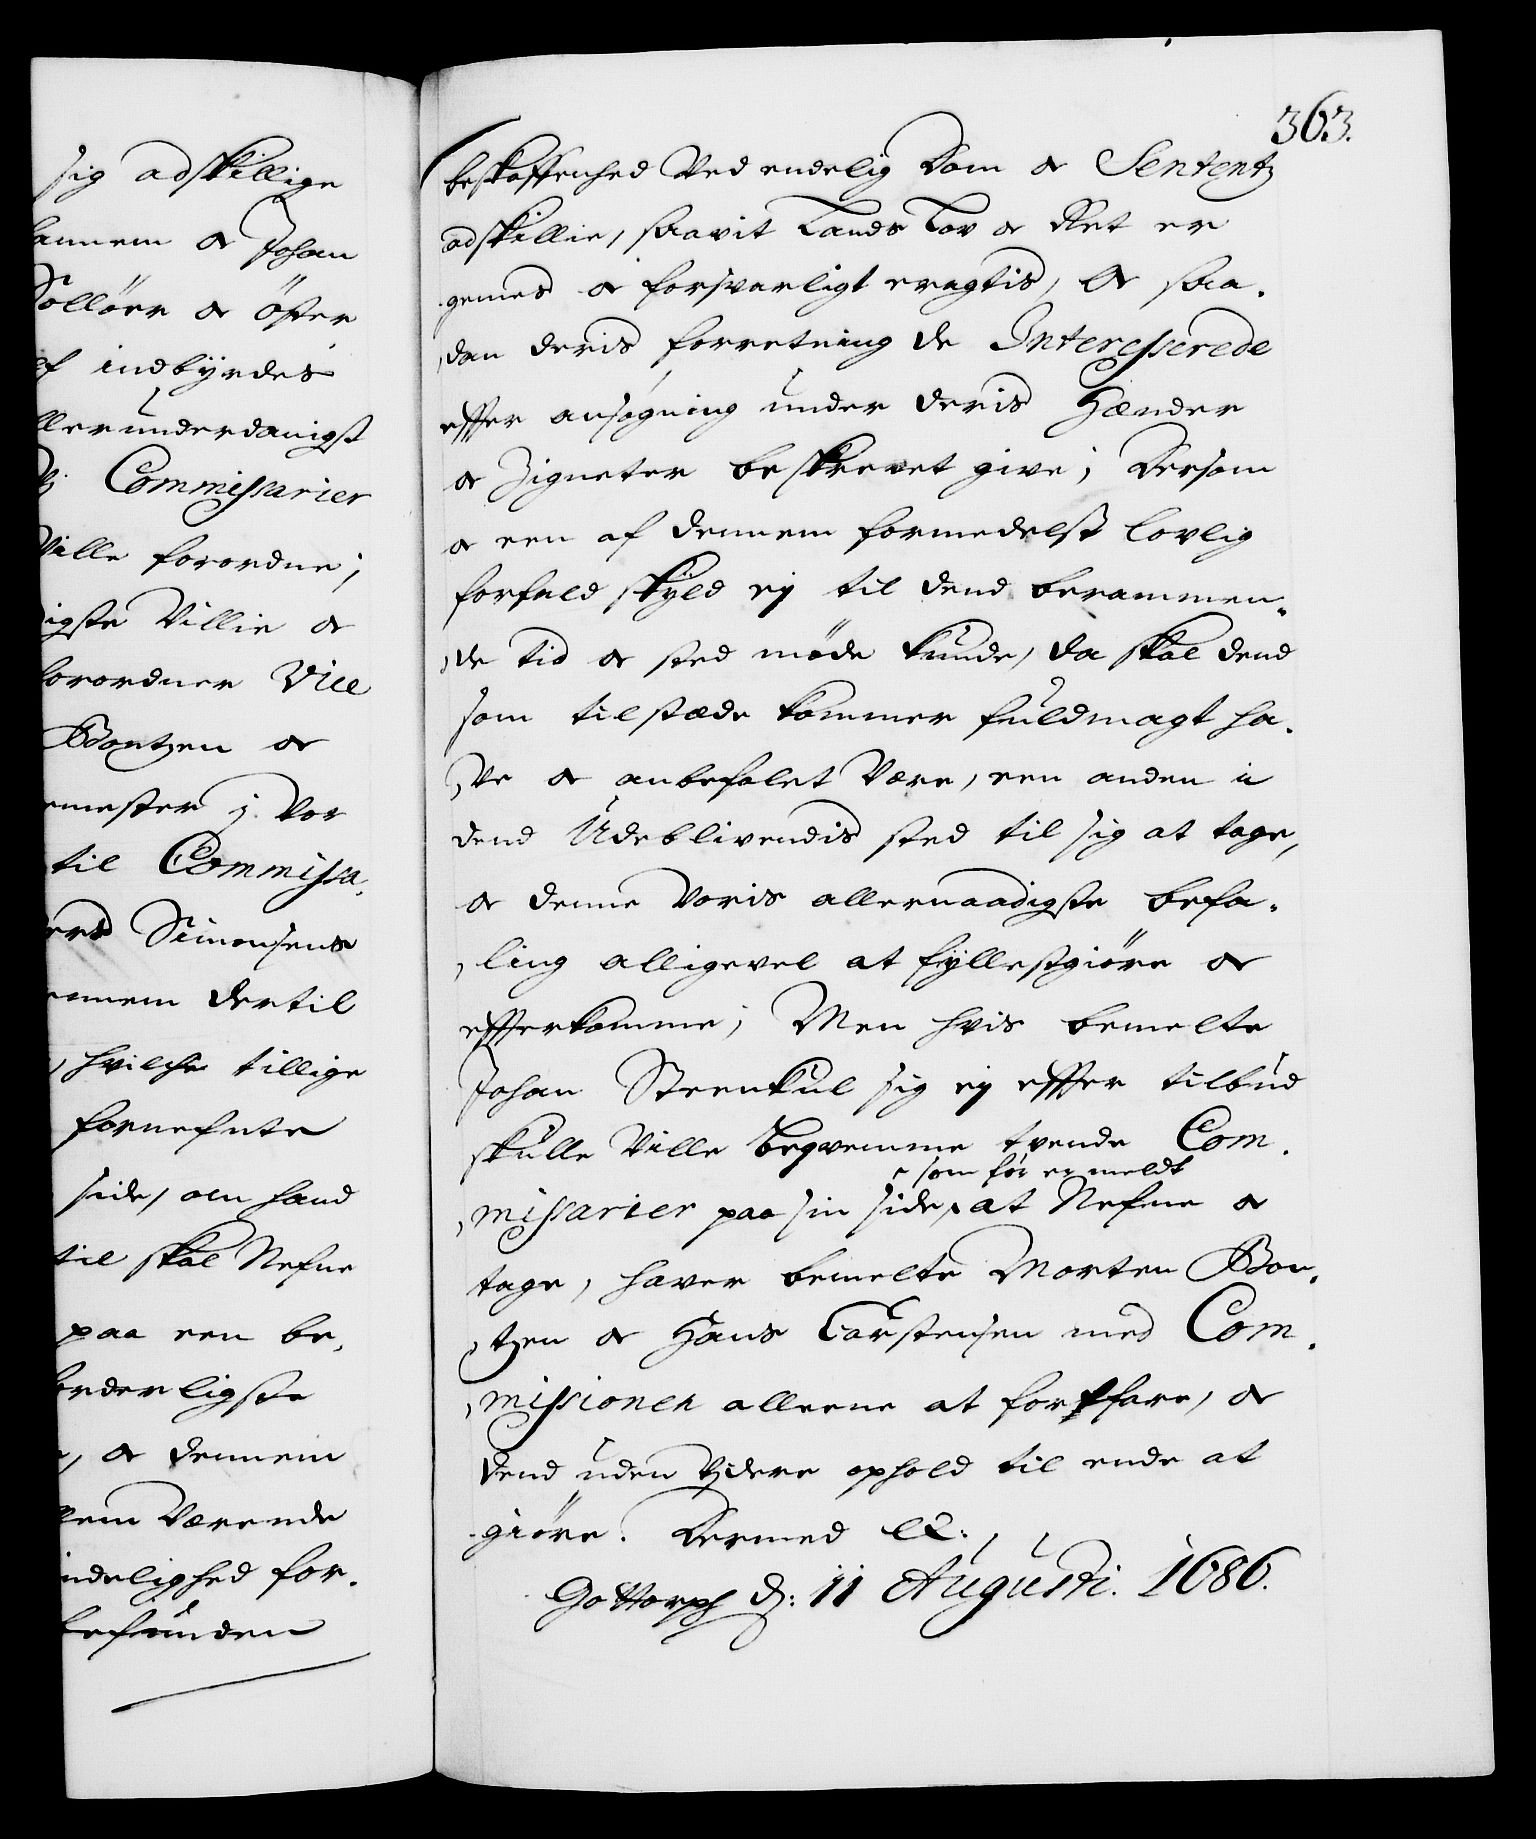 sig adskillige
hannem & Johan
Sollöer & öster
af indbyrdes
allerunderdanigst
Commissarier
Ville forordne;
digste Villie &
forordner Vice
Bontzen &
emester j. Vor
til Commissa,
Simonsens
ennem dertil
, hvilche tillige
fornefnte
side, om hand
til skal Nefne
paa een be,
forderligste
, & dennem
lem Værende
indelighed for,
befunden
363.
beskaffenhed Ved endelig Dom & Sententz
adskillie, saavit Lands Lov & Ret er
gemes & forsvarligt eragtis, & saa,
,dan deris forretning de Interesserede
effter ansøgning under deris Hænder
& Zigneter beskrevet give; Dersom
& een af dennem formedelst lovlig
forfald skyld ej til dend berammen,
,de tid & sted møde kunde, da skal dend
som tilstæde kommer fuldmagt ha,
,Ve & anbefalet Være, een anden i
dend Udeblivendis sted til sig at tage,
& denne Voris allernaadigste befa,
,ling alligevel at fyllestgiöre &
effterkomme; Men hvis bemelte
Johan Steenkul sig ej effter tilbud
skulle Ville beqvemme tvende Com,
som før er meldt
,missarier paa sin side, at Nefne &
tage, haver bemelte Morten Bon,
,tzen & Hans Carstensen med Com,
,missionen alleene at fortfare, &
dend uden Videre ophold til ende at
giöre. Dermed etc.
Gottorph d: 11 Augusti. 1686.